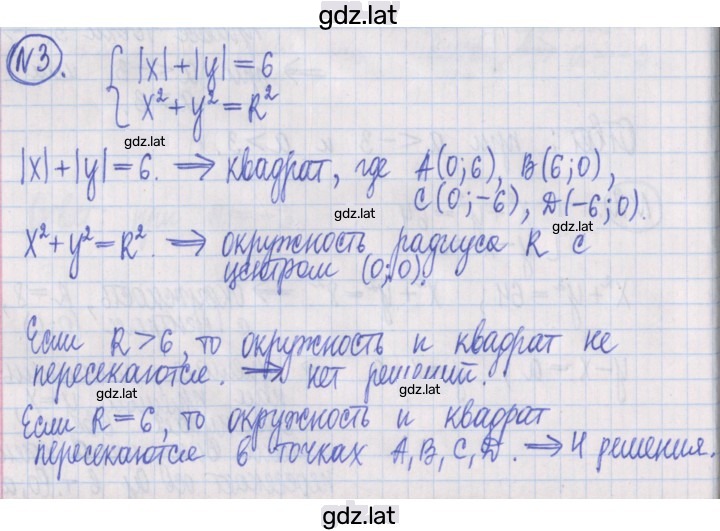 gdz.lat
№3. { |x|+|y|=6
x²+y²=R²
gdz.lat
|x|+|y|=6. ⟹ квадрат, где A(0;6), B(6;0),
gdz.lat
C(0;-6), D(-6;0).
gdz.lat
gdz.lat
x²+y²=R². ⟹ окружность радиуса R с
центром (0;0).
gdz.lat
Если R>6, то окружность и квадрат не
пересекаются. ⟹ нет решений.
gdz.lat
gdz.lat
Если R=6, то окружность и квадрат
пересекаются в точках A, B, C, D. ⟹ 4 решения.
gdz.lat
gdz.lat